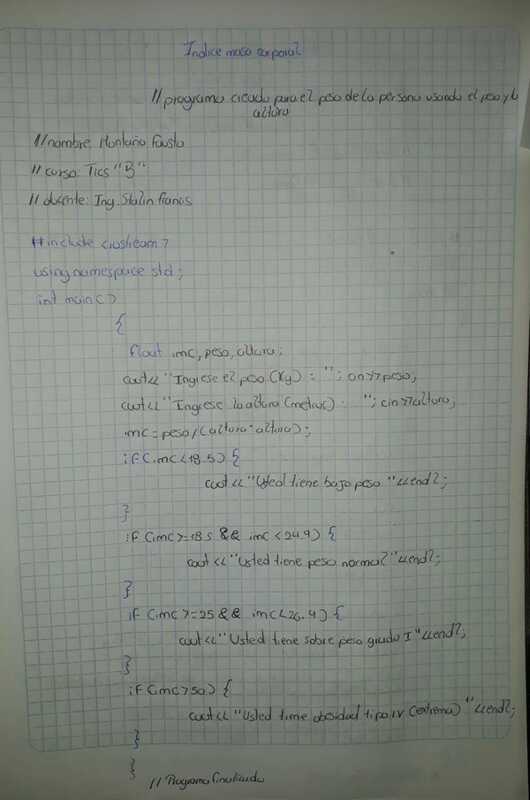 Indice masa corporal
//programa creado para el peso de la persona usando el peso y la
altura
//nombre: Montaño Fausto
// curso: Tics "B"
// docente: Ing. Stalin Francis
#include <iostream>
using namespace std;
int main()
{
float imc, peso, altura;
cout<< "Ingrese el peso (Kg) : "; cin>>peso;
cout<< "Ingrese la altura (metros) : "; cin>>altura;
imc = peso/(altura*altura);
if (imc<18.5) {
cout << "Usted tiene bajo peso "<<endl;
}
if (imc>=18.5 && imc <24.9) {
cout << "Usted tiene peso normal "<<endl;
}
if (imc>=25 && imc<26.9) {
cout<< "Usted tiene sobre peso grado I"<<endl;
}
if (imc>50) {
cout<< "Usted tiene obesidad tipo IV (extrema) "<<endl;
}
}
// Programa finalizado